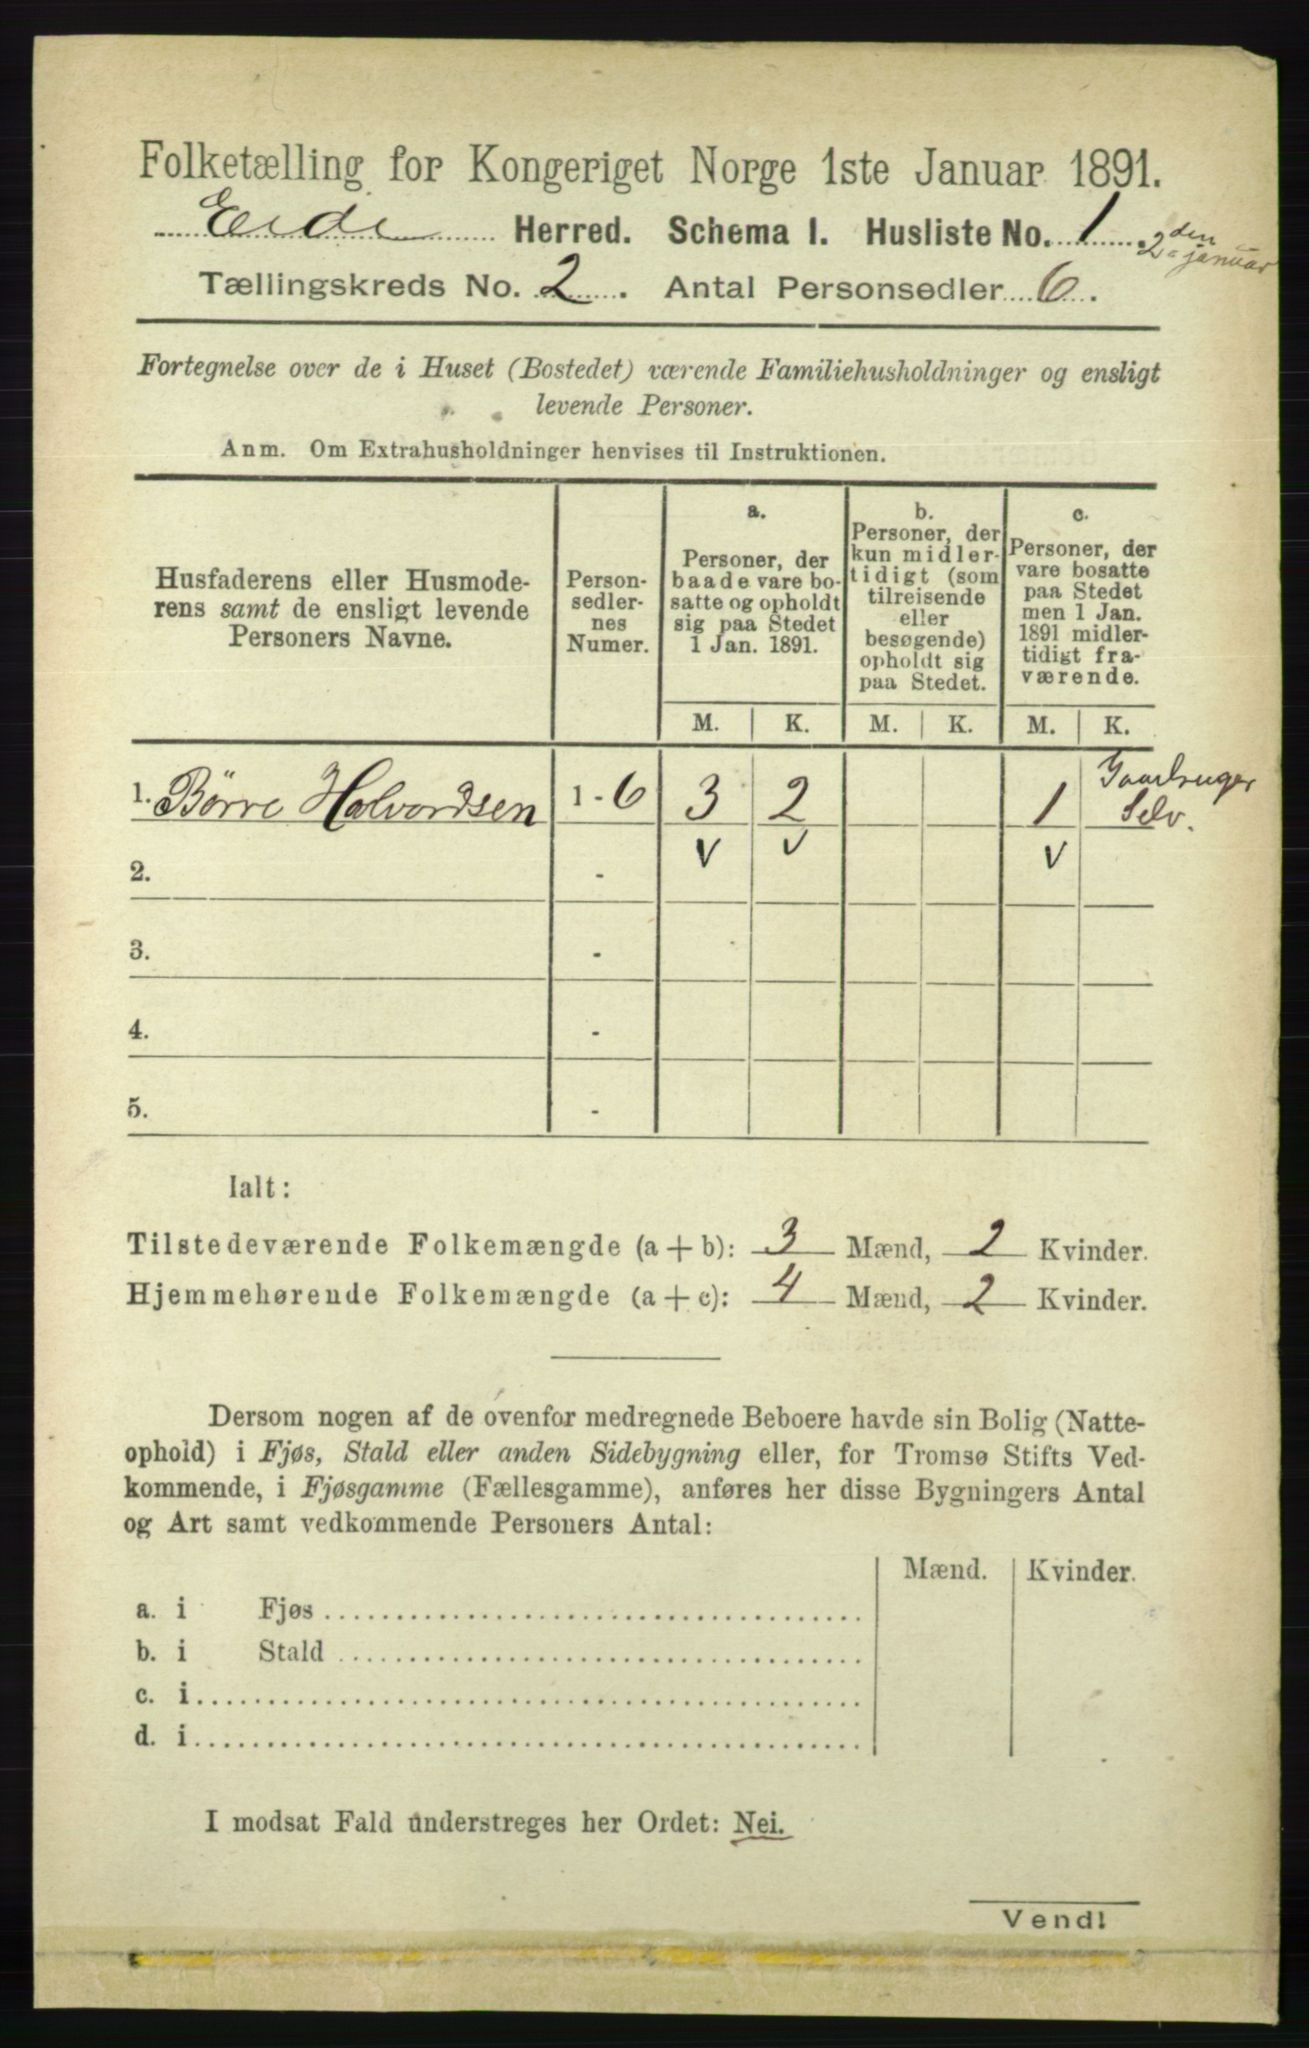 Folketælling for Kongeriget Norge 1ste Januar 1891.
Eide Herred. Schema I. Husliste No. 1
2den januar
Tællingskreds No. 2. Antal Personsedler 6.
Fortegnelse over de i Huset (Bostedet) værende Familiehusholdninger og ensligt
levende Personer.
Anm. Om Extrahusholdninger henvises til Instruktionen.
Husfaderens eller Husmode-
rens samt de ensligt levende
Personers Navne.
Person-
sedler-
nes
Numer.
a.
Personer, der
baade vare bo-
satte og opholdt
sig paa Stedet
1 Jan. 1891.
b.
Personer, der
kun midler-
tidigt (som
tilreisende
eller
besøgende)
opholdt sig
paa Stedet.
c.
Personer, der
vare bosatte
paa Stedet
men 1 Jan.
1891 midler-
tidigt fra-
værende.
M. K. M. K. M. K.
1. Børre Halvordsen 1 - 6 3 2 1 Gaardbruger
Selv.
2. - v v v
3. -
4. -
5. -
Ialt:
Tilstedeværende Folkemængde (a + b): 3 Mænd, 2 Kvinder.
Hjemmehørende Folkemængde (a + c): 4 Mænd, 2 Kvinder.
Dersom nogen af de ovenfor medregnede Beboere havde sin Bolig (Natte-
ophold) i Fjøs, Stald eller anden Sidebygning eller, for Tromsø Stifts Ved-
kommende, i Fjøsgamme (Fællesgamme), anføres her disse Bygningers Antal
og Art samt vedkommende Personers Antal:
Mænd. Kvinder.
a. i Fjøs
b. i Stald
c. i
d. i
I modsat Fald understreges her Ordet: Nei.
Vend!